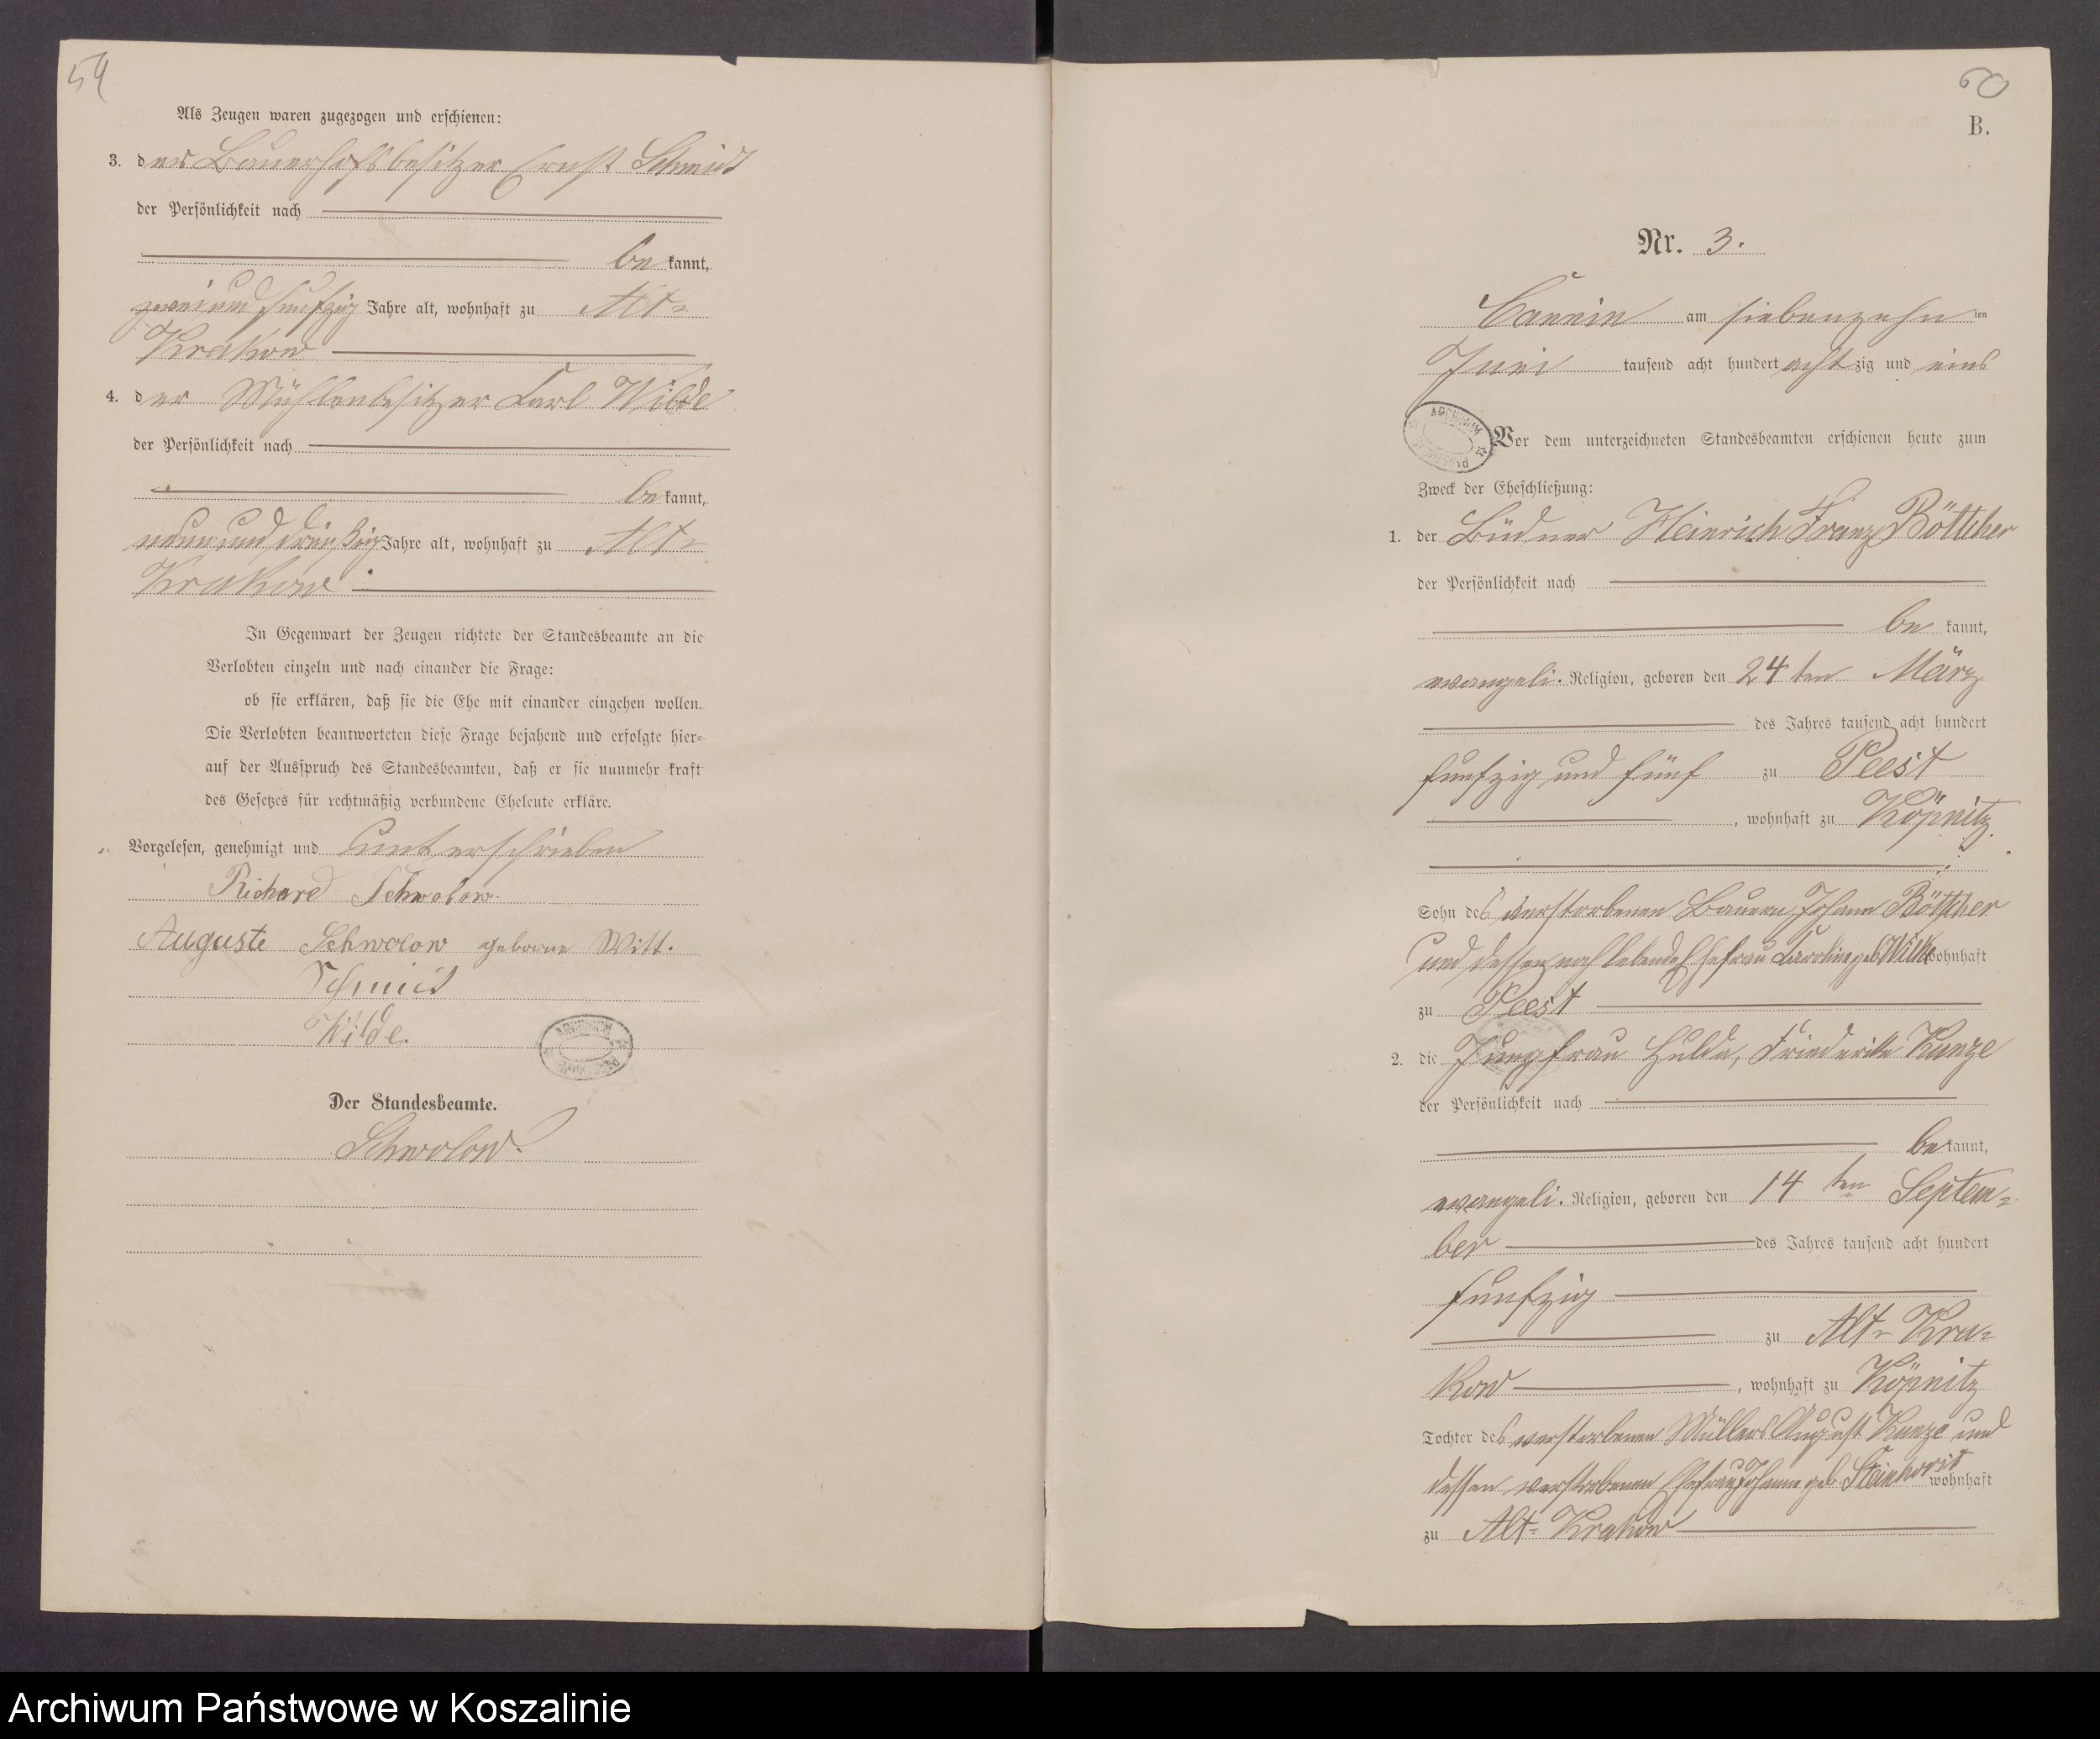 59
Als Zeugen waren zugezogen und erschienen:
3. der Bauerhofsbesitzer Ernst Schmidt
der Persönlichkeit nach
be kannt,
zwei und funfzig Jahre alt, wohnhaft zu Alt-
Krakow
4. der Mühlenbesitzer Carl Wilde
der Persönlichkeit nach
be kannt,
neun und dreißig Jahre alt, wohnhaft zu Alt-
Krakow
In Gegenwart der Zeugen richtete der Standesbeamte an die
Verlobten einzeln und nach einander die Frage:
ob sie erklären, daß sie die Ehe mit einander eingehen wollen.
Die Verlobten beantworteten diese Frage bejahend und erfolgte hier-
auf der Ausspruch des Standesbeamten, daß er sie nunmehr kraft
des Gesetzes für rechtmäßig verbundene Eheleute erkläre.
Vorgelesen, genehmigt und unterschrieben
Richard Schwolow.
Auguste Schwolow geborne Witt.
Schmidt
Wilde.
ARCHIWUM
Der Standesbeamte.
Schwolow.
60
B.
Nr. 3.
Cannin am siebenzehn ten
Juni tausend acht hundert achtzig und eins
ARCHIWUM
Vor dem unterzeichneten Standesbeamten erschienen heute zum
Zweck der Eheschließung:
1. der Büdner Heinrich Franz Böttcher
der Persönlichkeit nach
be kannt,
evangeli. Religion, geboren den 24 ten März
des Jahres tausend acht hundert
funfzig und fünf zu Peest
, wohnhaft zu Köpnitz
Sohn des verstorbenen Bauern Johann Böttcher
und dessen noch lebende Ehefrau Caroline geb. Wilke wohnhaft
zu Peest
2. die Jungfrau Hulda, Friederike Kunze
der Persönlichkeit nach
be kannt,
evangeli. Religion, geboren den 14 ten Septem-
ber des Jahres tausend acht hundert
funfzig
zu Alt-Kra-
kow, wohnhaft zu Köpnitz
Tochter des verstorbenen Müllers August Kunze und
dessen verstorbenen Ehefrau Johanne geb. Steinhorst wohnhaft
zu Alt-Krakow
Archiwum Państwowe w Koszalinie